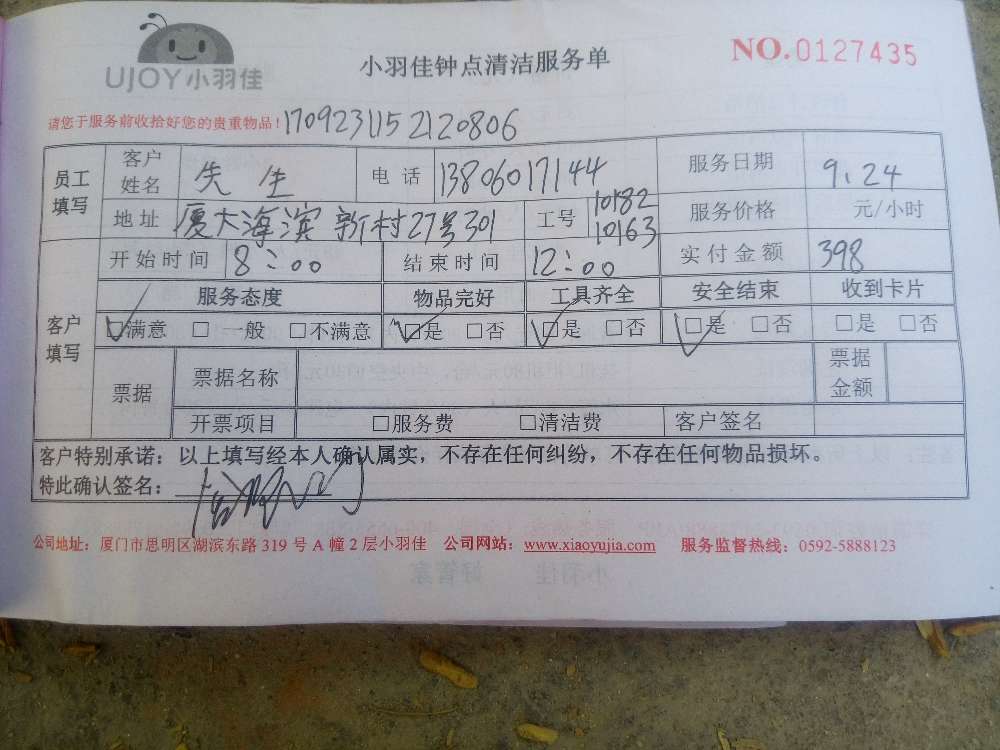 UJOY小羽佳
小羽佳钟点清洁服务单
NO.0127435
请您于服务前收拾好您的贵重物品!1709231152120806
员工填写 客户姓名 先生 电话 13806017144 服务日期 9.24
地址 厦大海滨新村27号301 工号 10182 10163 服务价格 元/小时
客户填写 开始时间 8:00 结束时间 12:00 实付金额 398
服务态度 物品完好 工具齐全 安全结束 收到卡片
☑满意 □一般 □不满意 ☑是 □否 ☑是 □否 ☑是 □否 □是 □否
票据 票据名称 票据金额
开票项目 □服务费 □清洁费 客户签名
客户特别承诺：以上填写经本人确认属实，不存在任何纠纷，不存在任何物品损坏。
特此确认签名：
公司地址：厦门市思明区湖滨东路319号A幢2层小羽佳 公司网站：www.xiaoyujia.com 服务监督热线：0592-5888123